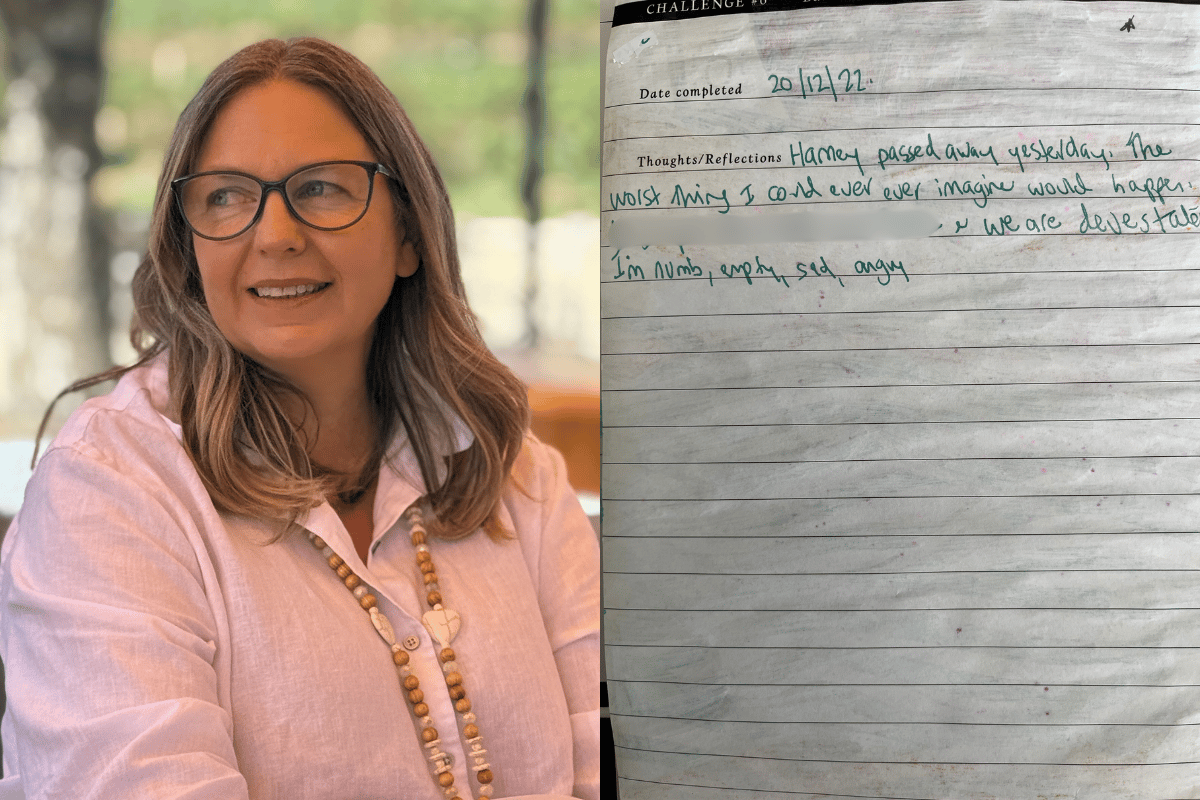 CHALLENGE #6
Date completed 20/12/22.
Thoughts/Reflections Harney passed away yesterday. The
worst thing I could ever ever imagine would happen.
we are devestate
I'm numb, empty, sad, angry